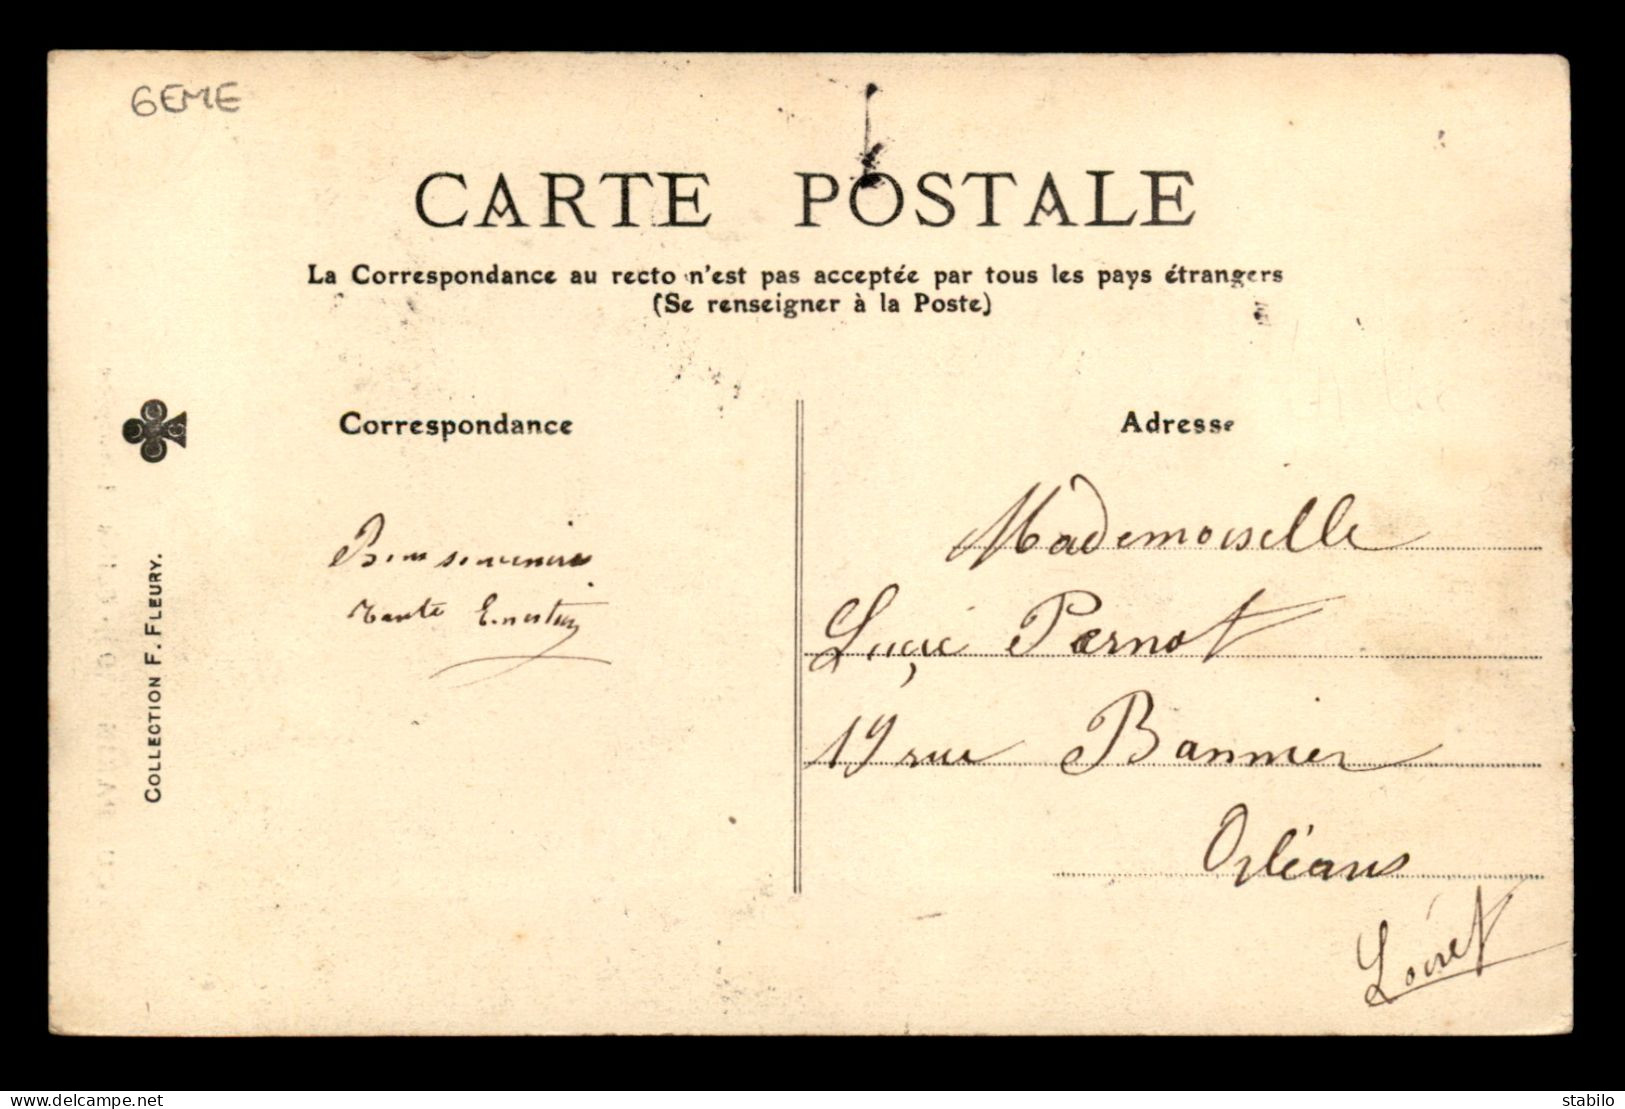 6EME
CARTE POSTALE
La Correspondance au recto n'est pas acceptée par tous les pays étrangers
(Se renseigner à la Poste)
Correspondance
Bons souvenirs
Tante
Adresse
Mademoiselle
Lucie Pernot
19 rue Bannier
Orléans
Loiret
COLLECTION F. FLEURY.
delcampe.net
stabilo